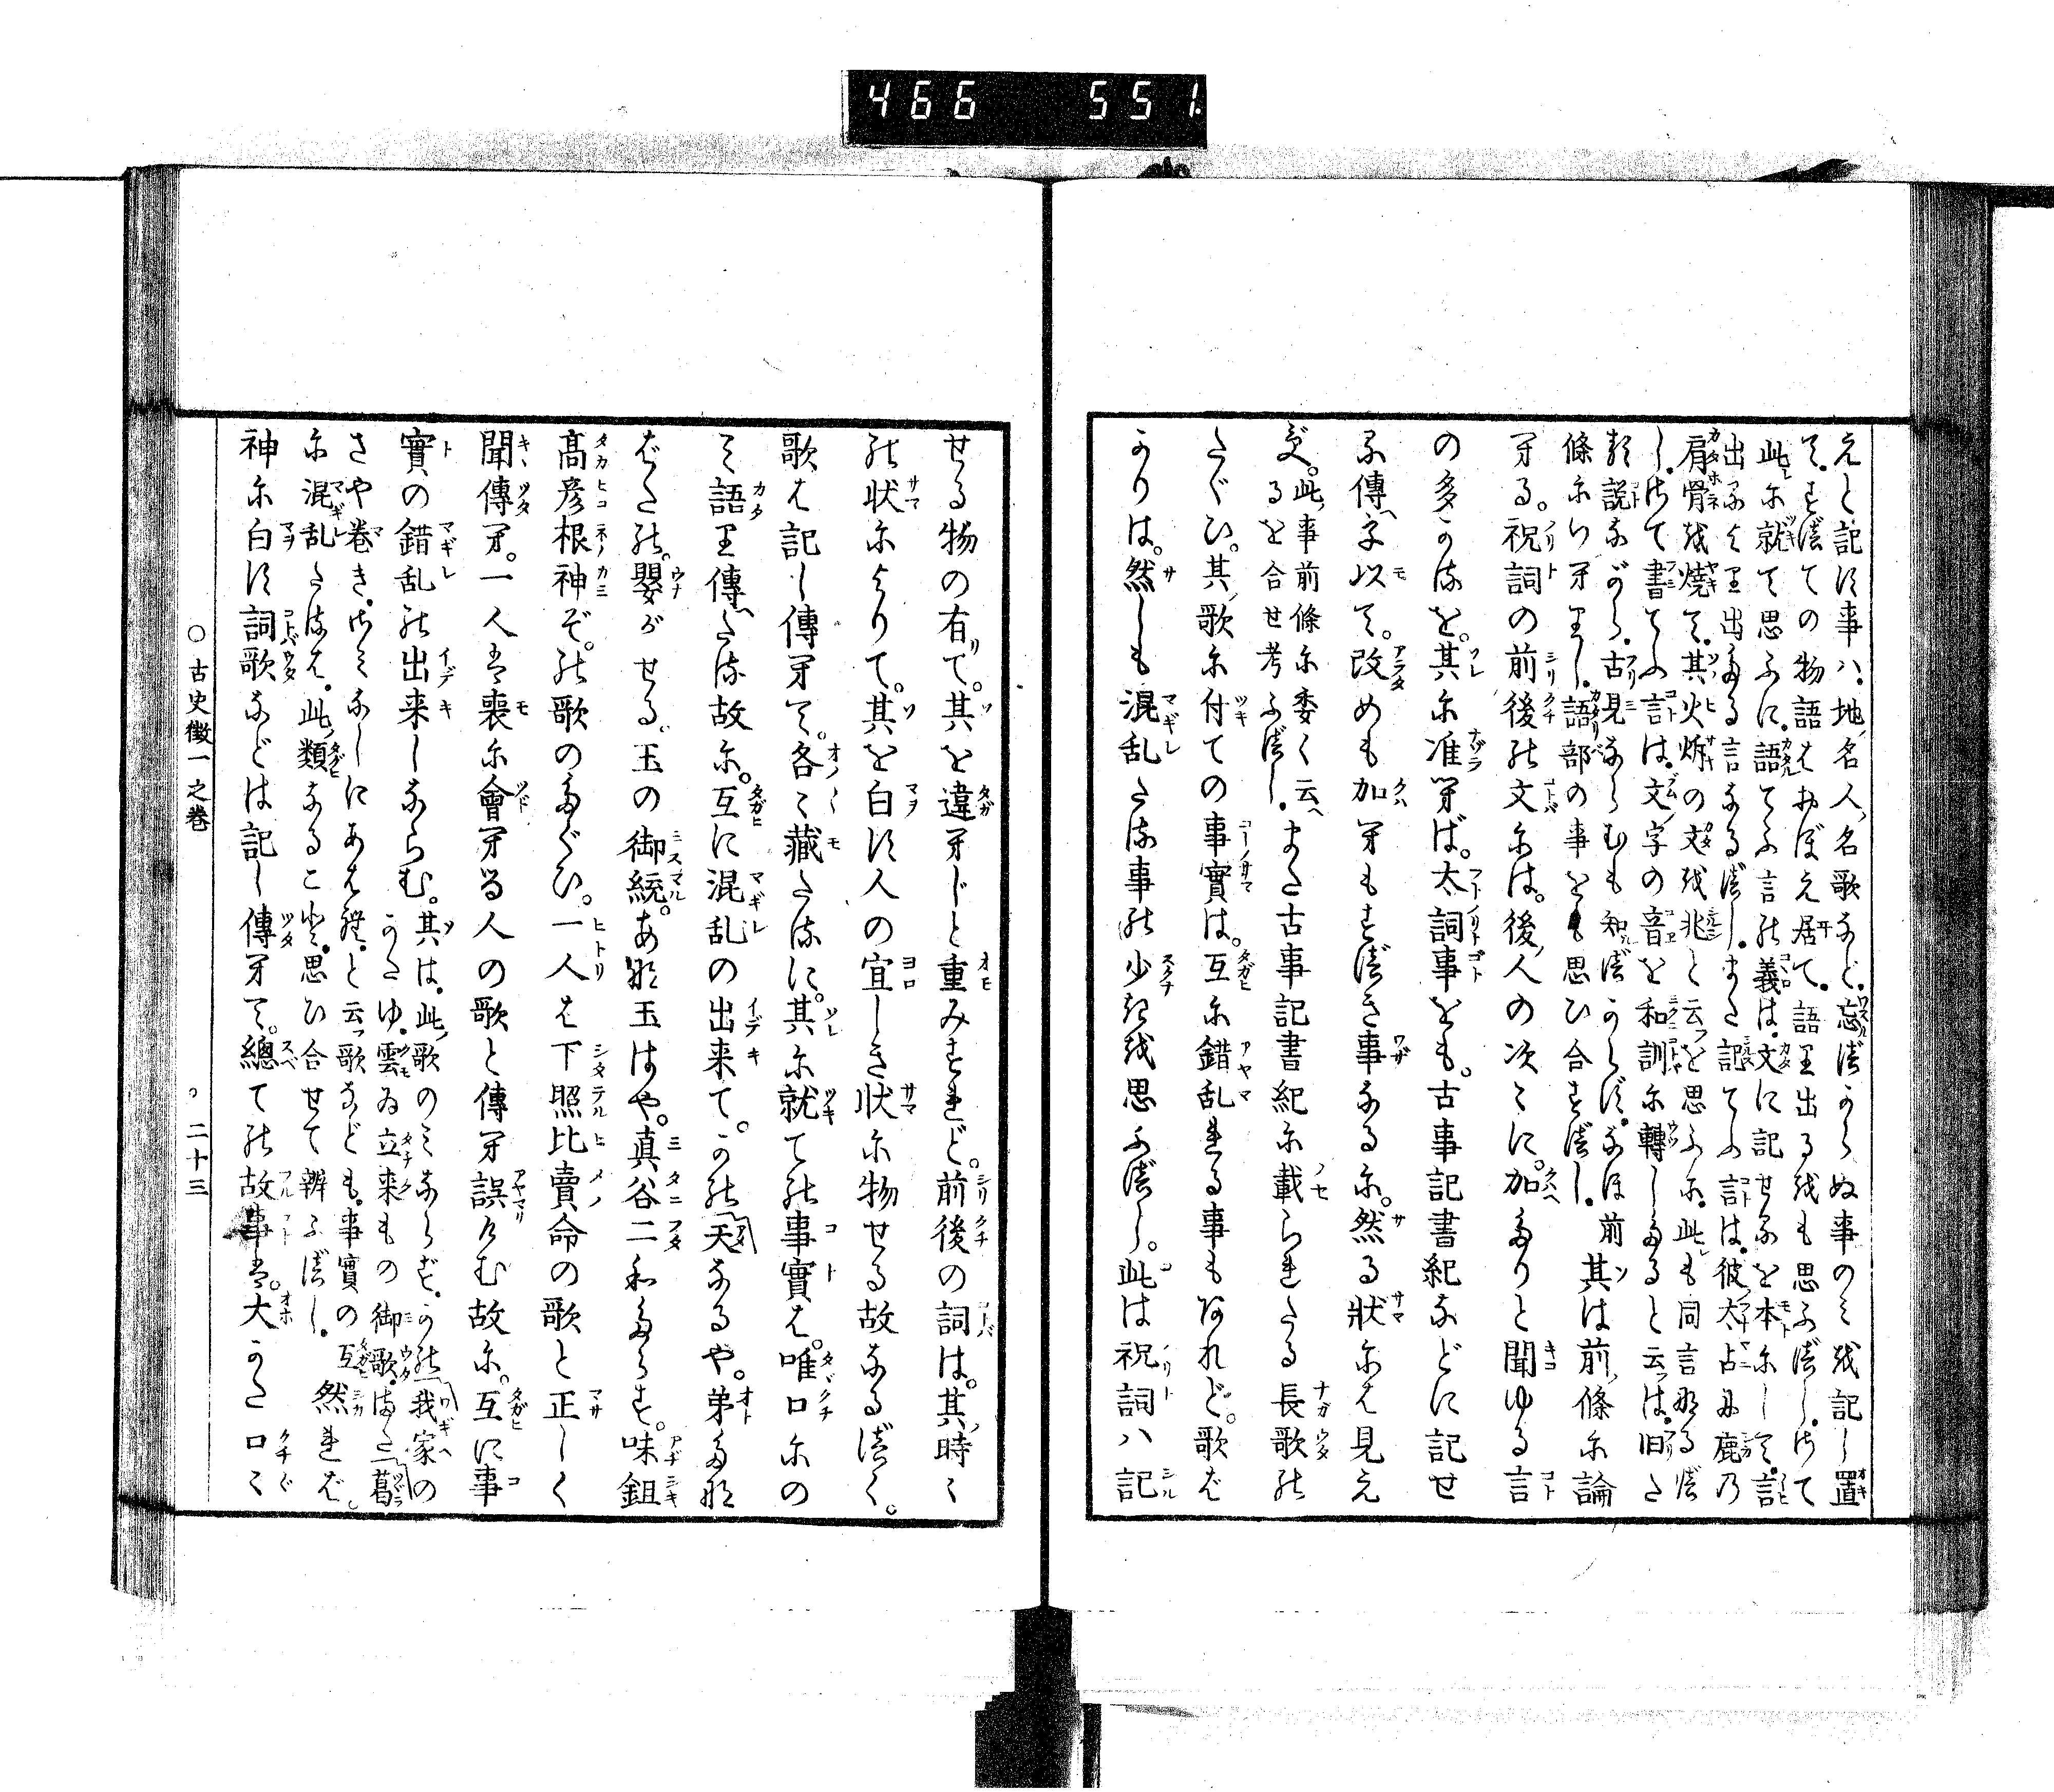 466 551
えと記す事ハ、地名人名歌など、忘るべからぬ事のミを記し置
て、すべての物語はおぼえ居て、語り出るをも思ふべし、さて
此に就て思ふに、語てふ言の義は、文に記せるを本にして、言
出るより出たる言なるべし、また記てふ言は、彼太占に鹿乃
肩骨を焼て、其火𤇆の文を兆と云を思ふに、此も同言なるべ
し、さて書てふ言は、文字の音を和訓に轉したると云は、旧き
説ながら、古見ならむも知べからず、なほ前
條にいへりし、語部の事をも思ひ合すべし、其は前條に論
へる。祝詞の前後の文には。後人の次々に。加たりと聞ゆる言
の多かるを。其に准へば。太詞事をも。古事記書紀などに記せ
る傳へを以て。改めも加へもすべき事なるに。然る状には見え
ず。此事前條に委く云へ
るを合せ考ふべし、また古事記書紀に載られたる長歌の
たぐひ。其歌に付ての事實は。互に錯乱れる事もあれど。歌ば
かりは。然しも混乱たる事の少きを思ふべし。此は祝詞ハ記
せる物の有て。其を違へじと重みすれど。前後の詞は。其時々
の状によりて。其を白す人の宜しき状に物せる故なるべく。
歌は記し傳へて。各々藏たるに。其に就ての事實は。唯口にの
み語り傳へたる故に。互に混乱の出来て。かの天なるや。弟た那
ばたの。嬰がせる。玉の御統。あな玉はや。真谷二わたらす。味鉏
髙彦根神ぞ。の歌のたぐひ。一人は下照比賣命の歌と正しく
聞傳へ。一人は喪に會へる人の歌と傳へ誤けむ故に。互に事
實の錯乱の出来しならむ。其は、此歌のミならず、かの我家の
かたゆ、雲ゐ立来もの御歌、またつ葛
さや巻き、さみなしにあはれ、と云歌なども、事實の互
に混乱たるは、此類なること、思ひ合せて辨ふべし、然れば。
神に白す詞歌などは記し傳へて。總ての故事は。大かた口々
○古史徴一之巻 二十三